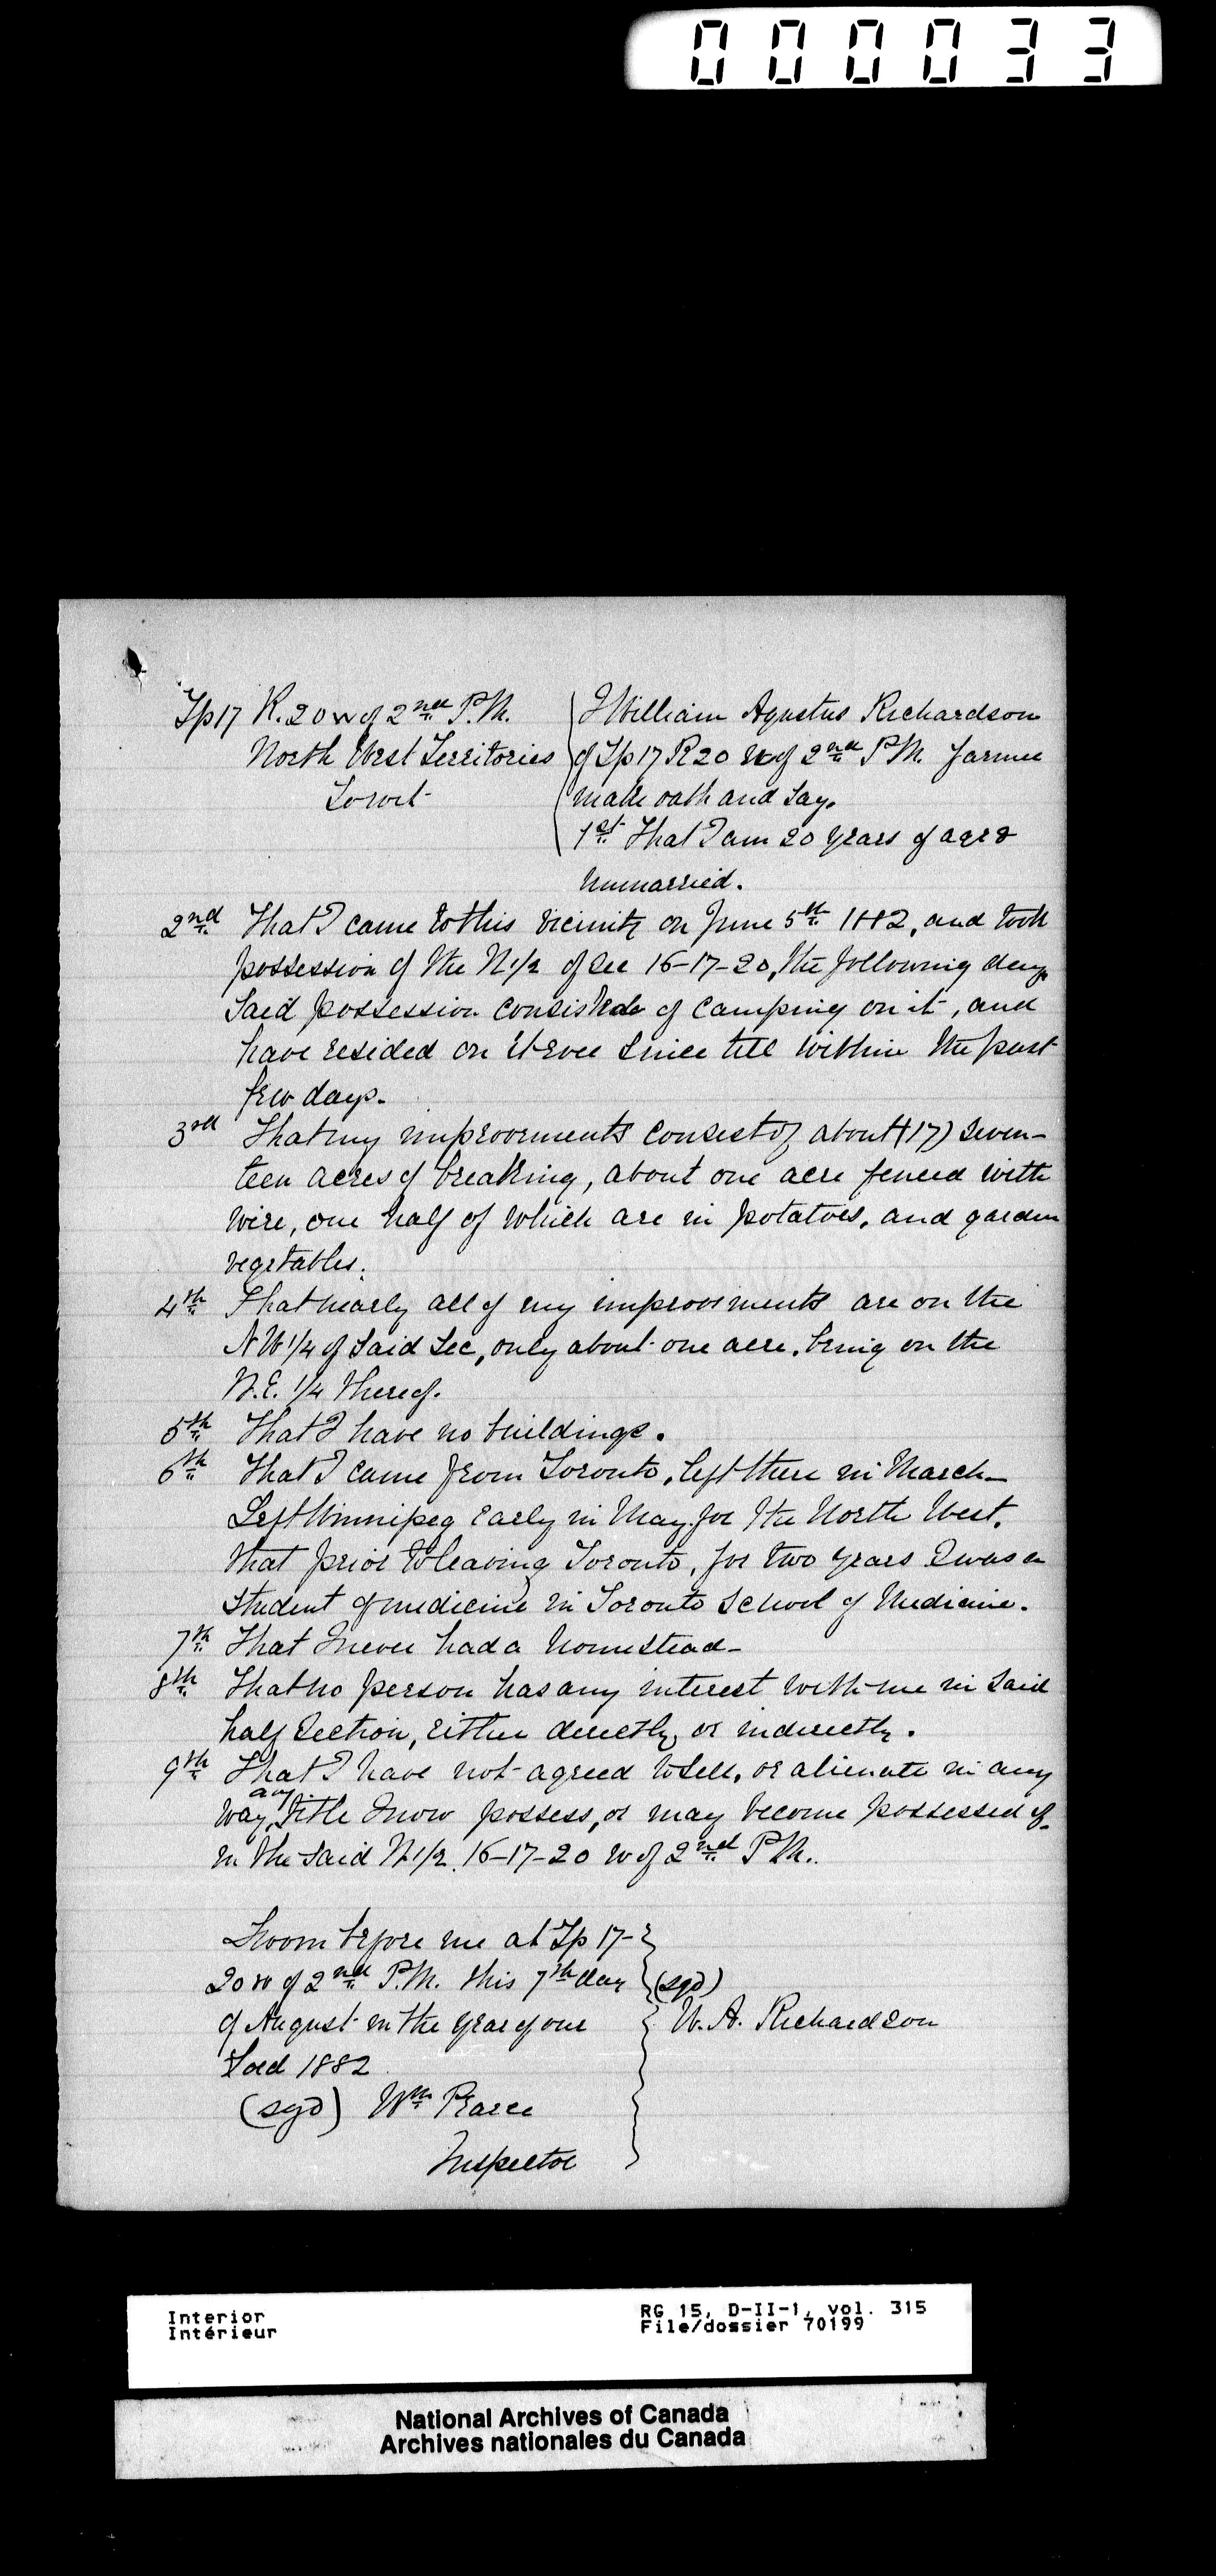 000033
Tp 17 R. 20 W of 2nd P.M.
North West Territories
To wit
I William Agustus Richardson
of Tp 17 R 20 W of 2nd P.M. farmer
make oath and say.
1st That I am 20 years of age &
unmarried.
2nd That I came to this vicinity on June 5th 1882, and took
possession of the N 1/2 of Sec 16-17-20, the following day.
Said possession consisted of camping on it, and
have resided on it ever since till within the past
few days.
3rd That my improvements consist of about (17) seven-
teen acres of breaking, about one acre fenced with
wire, one half of which are in potatoes, and garden
vegetables.
4th That nearly all of my improvements are on the
N W 1/4 of said Sec, only about one acre, being on the
N.E. 1/4 thereof.
5th That I have no buildings.
6th That I came from Toronto, left there in March-
Left Winnipeg early in May for the North West.
that prior to leaving Toronto, for two years I was a
student of medicine in Toronto School of Medicine.
7th That I never had a homestead-
8th That no person has any interest with me in said
half section, either directly, or indirectly.
9th That I have not agreed to sell, or alienate in any
way, any title I now possess, or may become possessed of
in the said N 1/2. 16-17-20 W of 2nd P.M.
Sworn before me at Tp 17-
20 W of 2nd P.M. this 7th day
of August in the year of our
Lord 1882
(sgd) Wm Pearce
Inspector
(sgd)
W. A. Richardson
Interior
Intérieur
RG 15, D-II-1, vol. 315
File/dossier 70199
National Archives of Canada
Archives nationales du Canada